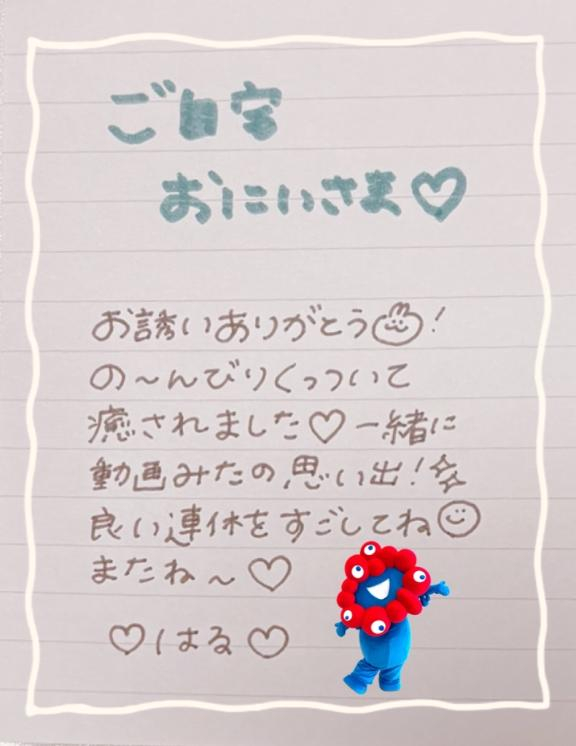 ご自宅
おにいさま♡
お誘いありがとう!
の〜んびりくっついて
癒されました♡一緒に
動画みたの思い出!
良い連休をすごしてね
またね〜♡
♡はる♡